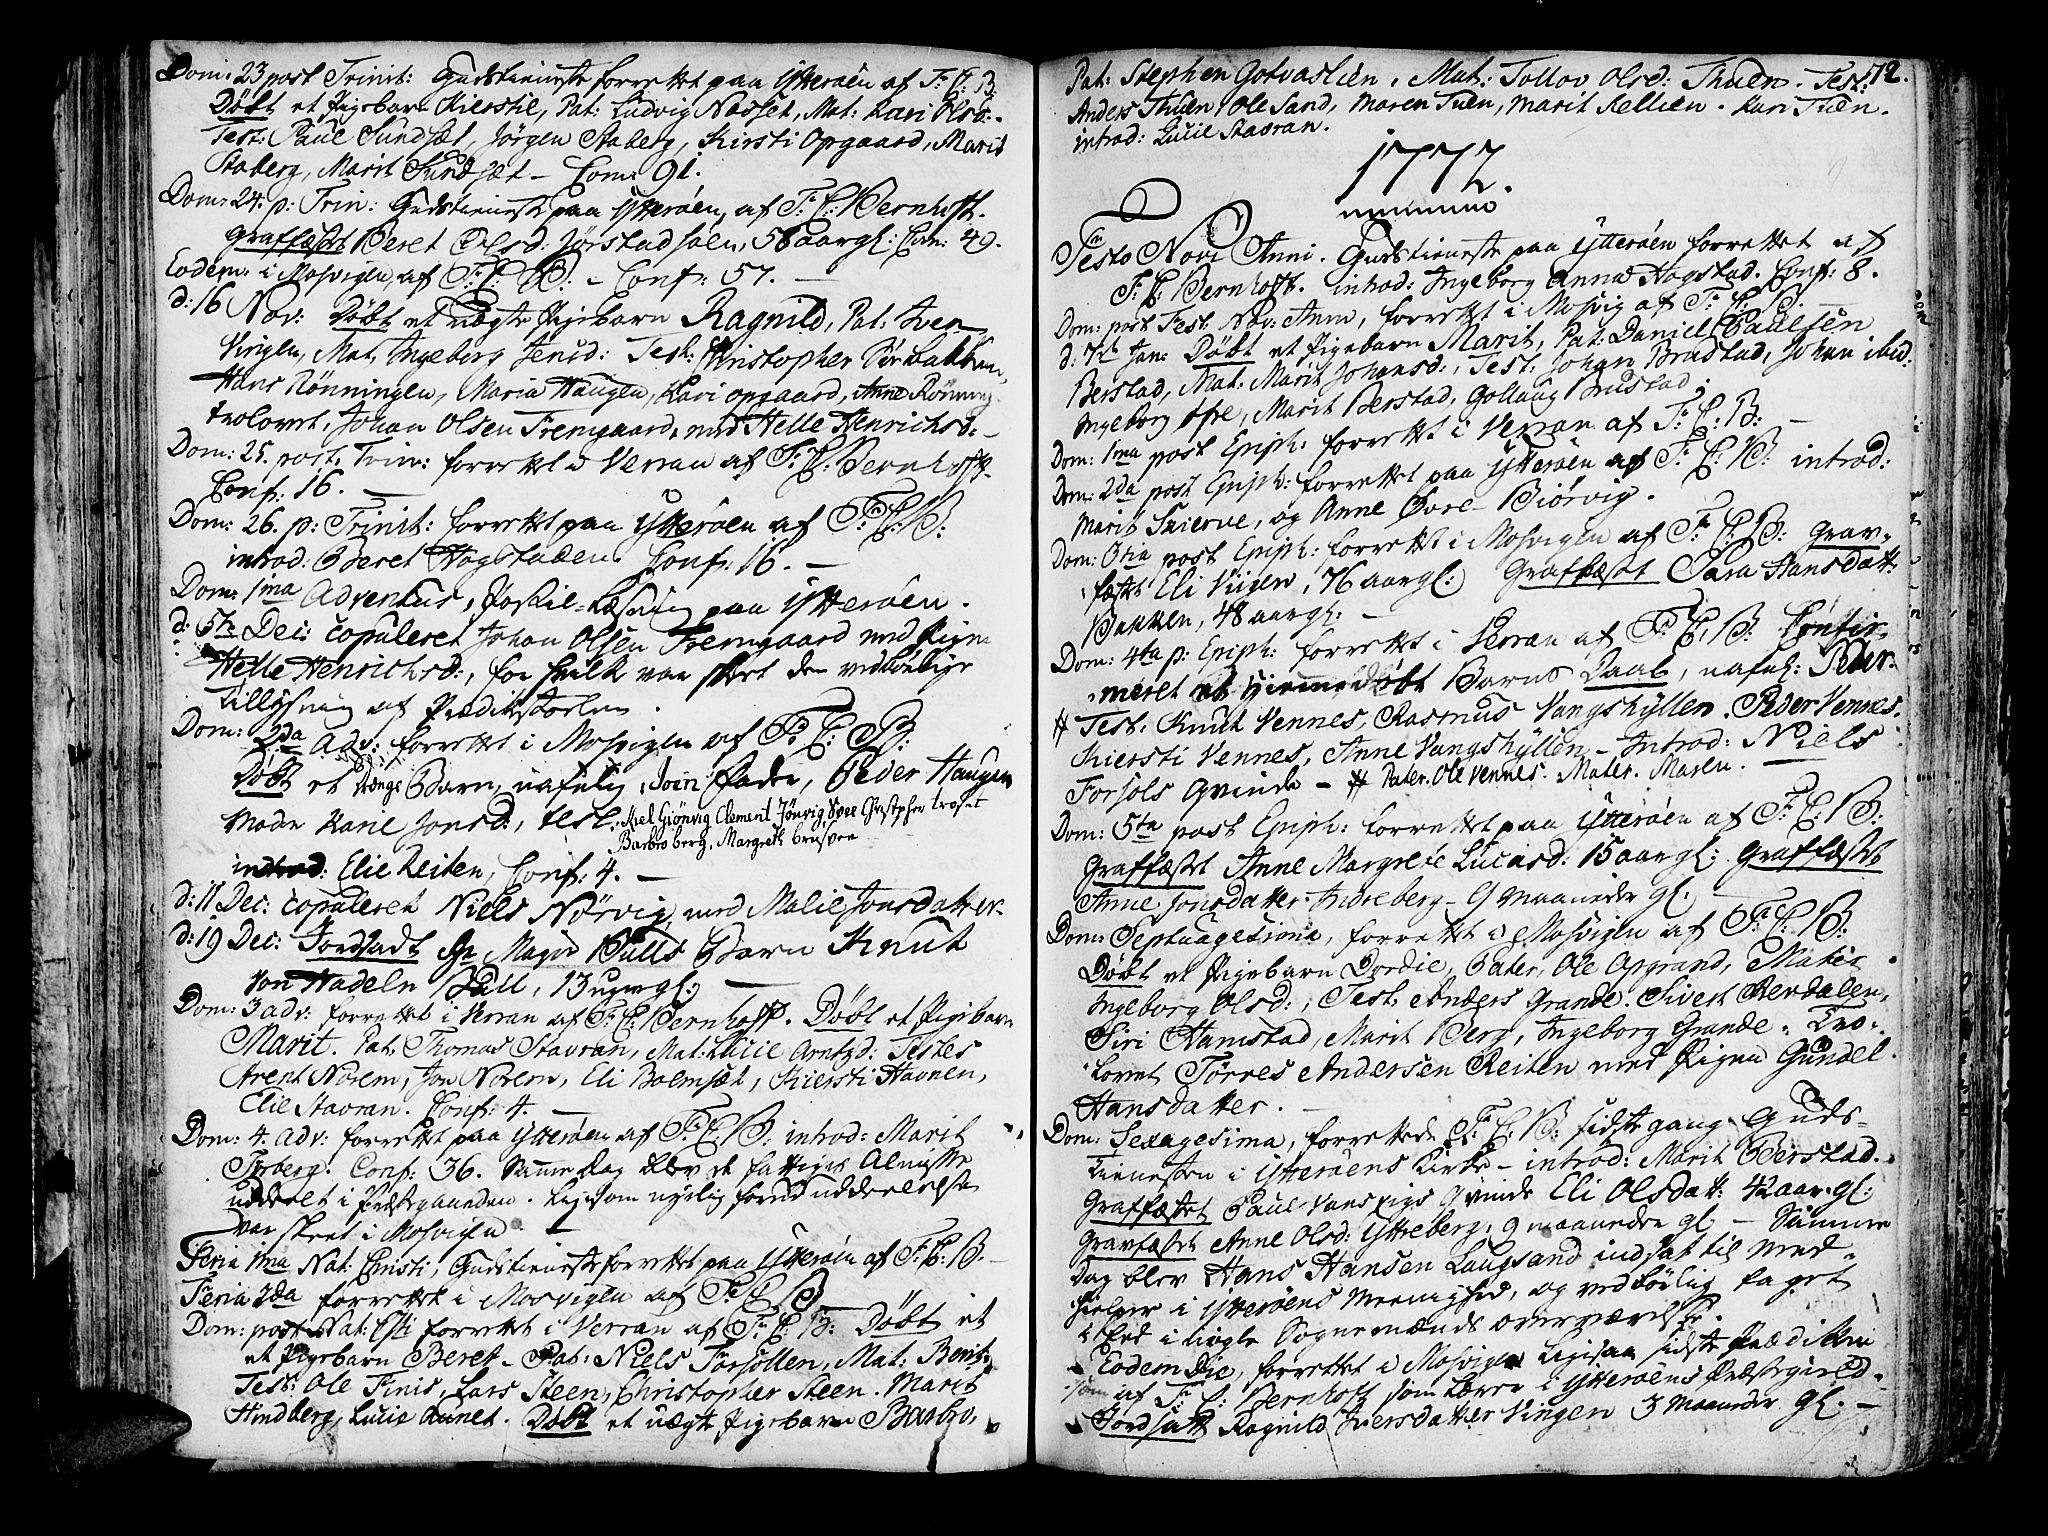 Dom: 23 post Trinit: Gudstieneste forrettet paa Ytterøen af F: C: B:
Døbt et Pigebarn Kierstie, Pat: Ludvig Næsset, Mat: Kari Olsd:
Test: Paul Sundsæt, Jørgen Staberg, Kirsti Opgaard, Marit
Staberg, Marit Sundsæt – Com: 91.
Dom: 24. p: Trin: Gudstieneste paa Ytterøen, af F: C: Bernhoft.
Graffæstet Beret Olsd: Jørstad 58 aar gl: Com: 49.
Eodem: i Mosvigen, af F: C: B: – Conf: 57. —
d: 16 Nov: Døbt et uægte Pigebarn Ragnild, Pat: Iver
Vingen, Mat: Ingeberg Jensd: Test: Christopher
Hans Rønningen, Maria Haugen, Kari opgaard, Anne Rønning
trolovet, Johan Olsen Fremgaard, med Helle Henrichsd: –
Dom: 25. post. Trin: forrettet i Verran af F: C: Bernhoft.
Conf: 16. —
Dom: 26. p: Trinit: forrettet paa Ytterøen af F: C: B:
introd: Beret Hogstaden. Conf: 16. —
Dom: 1ma Adventus, Postil-Læsning paa Ytterøen.
d: 5te Dec: copuleret Johan Olsen Fremgaard med Pigen
Helle Henrichsd:, for hvilk var skeet den vedbørlige
Tillysning af Prædikestolen.
Dom: 2da Adv: forrettet i Mosvigen af F: C: B:
Døbt et Drenge Barn, nafnlig, Join, fader, Peder Haugen
Moder Karie Jonsd:, test: Axel Giønvig Clement Jønvig Christopher troset
Barbro berg, Margrethe
introd: Elie Reiten, Conf: 4. —
d: 11 Dec: copuleret Niels Nørvig med Malie Jonsdatter.
d: 19 Dec: Jordsadt Hr Major Bulls Barn Knut
Von Hadeln Bull, 13 uger gl: —
Dom: 3 adv: forrettet i Verran af F: C: Bernhoff. Døbt et Pigebarn
Marit. Pat: Thomas Stavran, Mat: Lucie Arntzd: Testes
Arent Norem, Jon Norem, Eli Bolmsæt, Kiersti Havnen,
Elie Stavran. Conf: 4. —
Dom: 4. Adv: forrettet paa Ytterøen af F: C: B: introd: Marit
Forberg. Conf: 36. Samme dag blev de fattiges Almisse
uddelet i Præstegaarden. Ligesom nyelig forud uddeelelse
var skeet i Mosvigen.
Feria 1ma Nat: Christi, Gudstieneste forrettet paa Ytterøen af F: C: B: –
Feria 2da forrettet i Mosvigen af F: C: B:
Dom: post Nat: Csti forrettet i Verran af F: C: B: Døbt et
et Pigebarn Beret – Pat: Niels Forsollen, Mat: Berit:
Test: Ole Finis, Lars Steen, Christopher Steen. Marit
Hindberg, Lucie Aunet. Døbt et uægte Pigebarn Barbro,
Pat: Stephen Gotvaslien, Mat: Tollov Olsd: Thuen. Test: 72.
Anders Thuen, Ole Sand, Maren Tuen, Marit Kellien. Kari Tuen.
introd: Lucie Stavran.
1772.
Festo Novi Anni. Gudstieneste paa Ytterøen forrettet af
F: C: Bernhoft. introd: Ingeborg Anna Hogstad. Conf: 8.
Dom: post Fest. Nov: Anni, forrettet i Mosvig af F: C: B: —
d: 7de Jan: Døbt et Pigebarn Marit, Pat: Daniel Paulsen
Berstad, Mat: Marit Johansd:, Test: Johan Brustad, Johan ibid.
Ingeborg øfre, Marit Berstad, Gollaug Brustad.
Dom: 1ma post Epiph: forrettet i Verran af F: C: B: —
Dom: 2da post Epiph: forrettet paa Ytterøen af F: C: B: introd:
Marit Skierve, og Anne Øvre-Biørvig.
Dom: 3tia post Epiph: forrettet i Mosvigen af F: C: B: Grav-
fæstet Eli Viigen, 76 aar gl: Graffæstet Sara Hansdatt:
Bakken, 48 aar gl: —
Dom: 4ta p: Epiph: forrettet i Verran af F: C: B: Confir-
meret et hiemmedøbt Barns Daab, nafnl: Peder.
# Test: Knut Vennes, Rasmus Vangshyllen. Peder Vennes.
Kiersti Vennes, Anne Vangshyllen – Introd: Niels
Forsols Qvinde – # Pater. Ole Vennes. Mater. Maren. —
Dom: 5ta post Epiph: forrettet paa Ytterøen af F: C: B:
Graffæstet Anne Margrete Lucasd: 15 aar gl: Graffæstet
Anne Jonsdatter Indreberg – 9 maaneder gl. —
Dom: Septuagesima, forrettet i Mosvigen af F: C: B:
Døbt et Pigebarn Dordie, Pater, Ole Opgrand, Mater
Ingeborg Olsd:, Test: Anders Grande. Sivert Reodalen,
Siri Hamstad, Marit Berg, Ingeborg Grande. Tro-
lovet Torres Andersen Reiten med Pigen Gundel
Hansdatter. —
Dom: Sexagesima, forrettede F: C: B: sidste gang Guds-
tienesten i Ytterøens Kirke – introd: Marit Berstad.
Graffæstet Paul Qvinde Eli Olsdatt: 42 aar gl:
Gravfæstet Anne Olsd: Ytreberg, 9 maaneder gl – Samme
dag blev Hans Hansen Laugsand indsat til med-
hielper i Ytterøens Meenighed, og vedbørlig taget
i Eed i nogle Sognemænds overværelse.
Eodem Die, forrettet i Mosvigen ligesaa sidste Prædiken
af F: C: Bernhoft som Lærer i Ytterøens Præstegield.
Jordsatt Ragnild Iversdatter Vingen 3 Maaneder gl. —